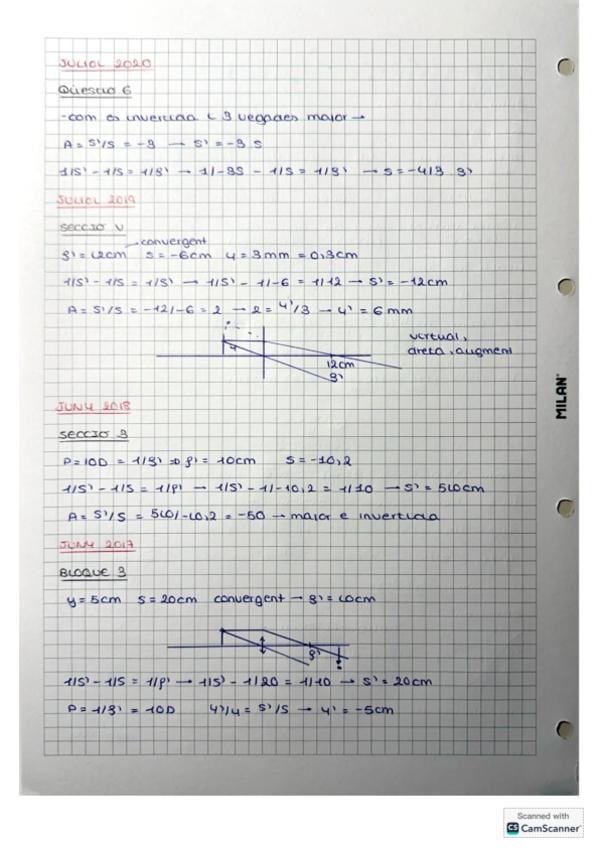 JULIOL 2020
Qüestió 6
- com és invertida i 3 vegades major →
A = s'/s = -3 → s' = -3 s
1/s' - 1/s = 1/f' → 1/-3s - 1/s = 1/f' → s = -4/3 f'
JULIOL 2019
SECCIÓ V
convergent
f' = 12cm s = -6cm y = 3mm = 0,3cm
1/s' - 1/s = 1/f' → 1/s' - 1/-6 = 1/12 → s' = -12cm
A = s'/s = -12/-6 = 2 → 2 = y'/3 → y' = 6mm
virtual,
dreta, augment
y
12cm
f'
JUNY 2018
SECCIÓ 3
P = 10D = 1/f' ⇒ f' = 10cm s = -10,2
1/s' - 1/s = 1/f' → 1/s' - 1/-10,2 = 1/10 → s' = 510cm
A = s'/s = 510/-10,2 = -50 → major e invertida
JUNY 2017
BLOQUE 3
y = 5cm s = 20cm convergent → f' = 10cm
f'
1/s' - 1/s = 1/f' → 1/s' - 1/20 = 1/10 → s' = 20cm
P = 1/f' = 10D y'/y = s'/s → y' = -5cm
MILAN
Scanned with
CS CamScanner